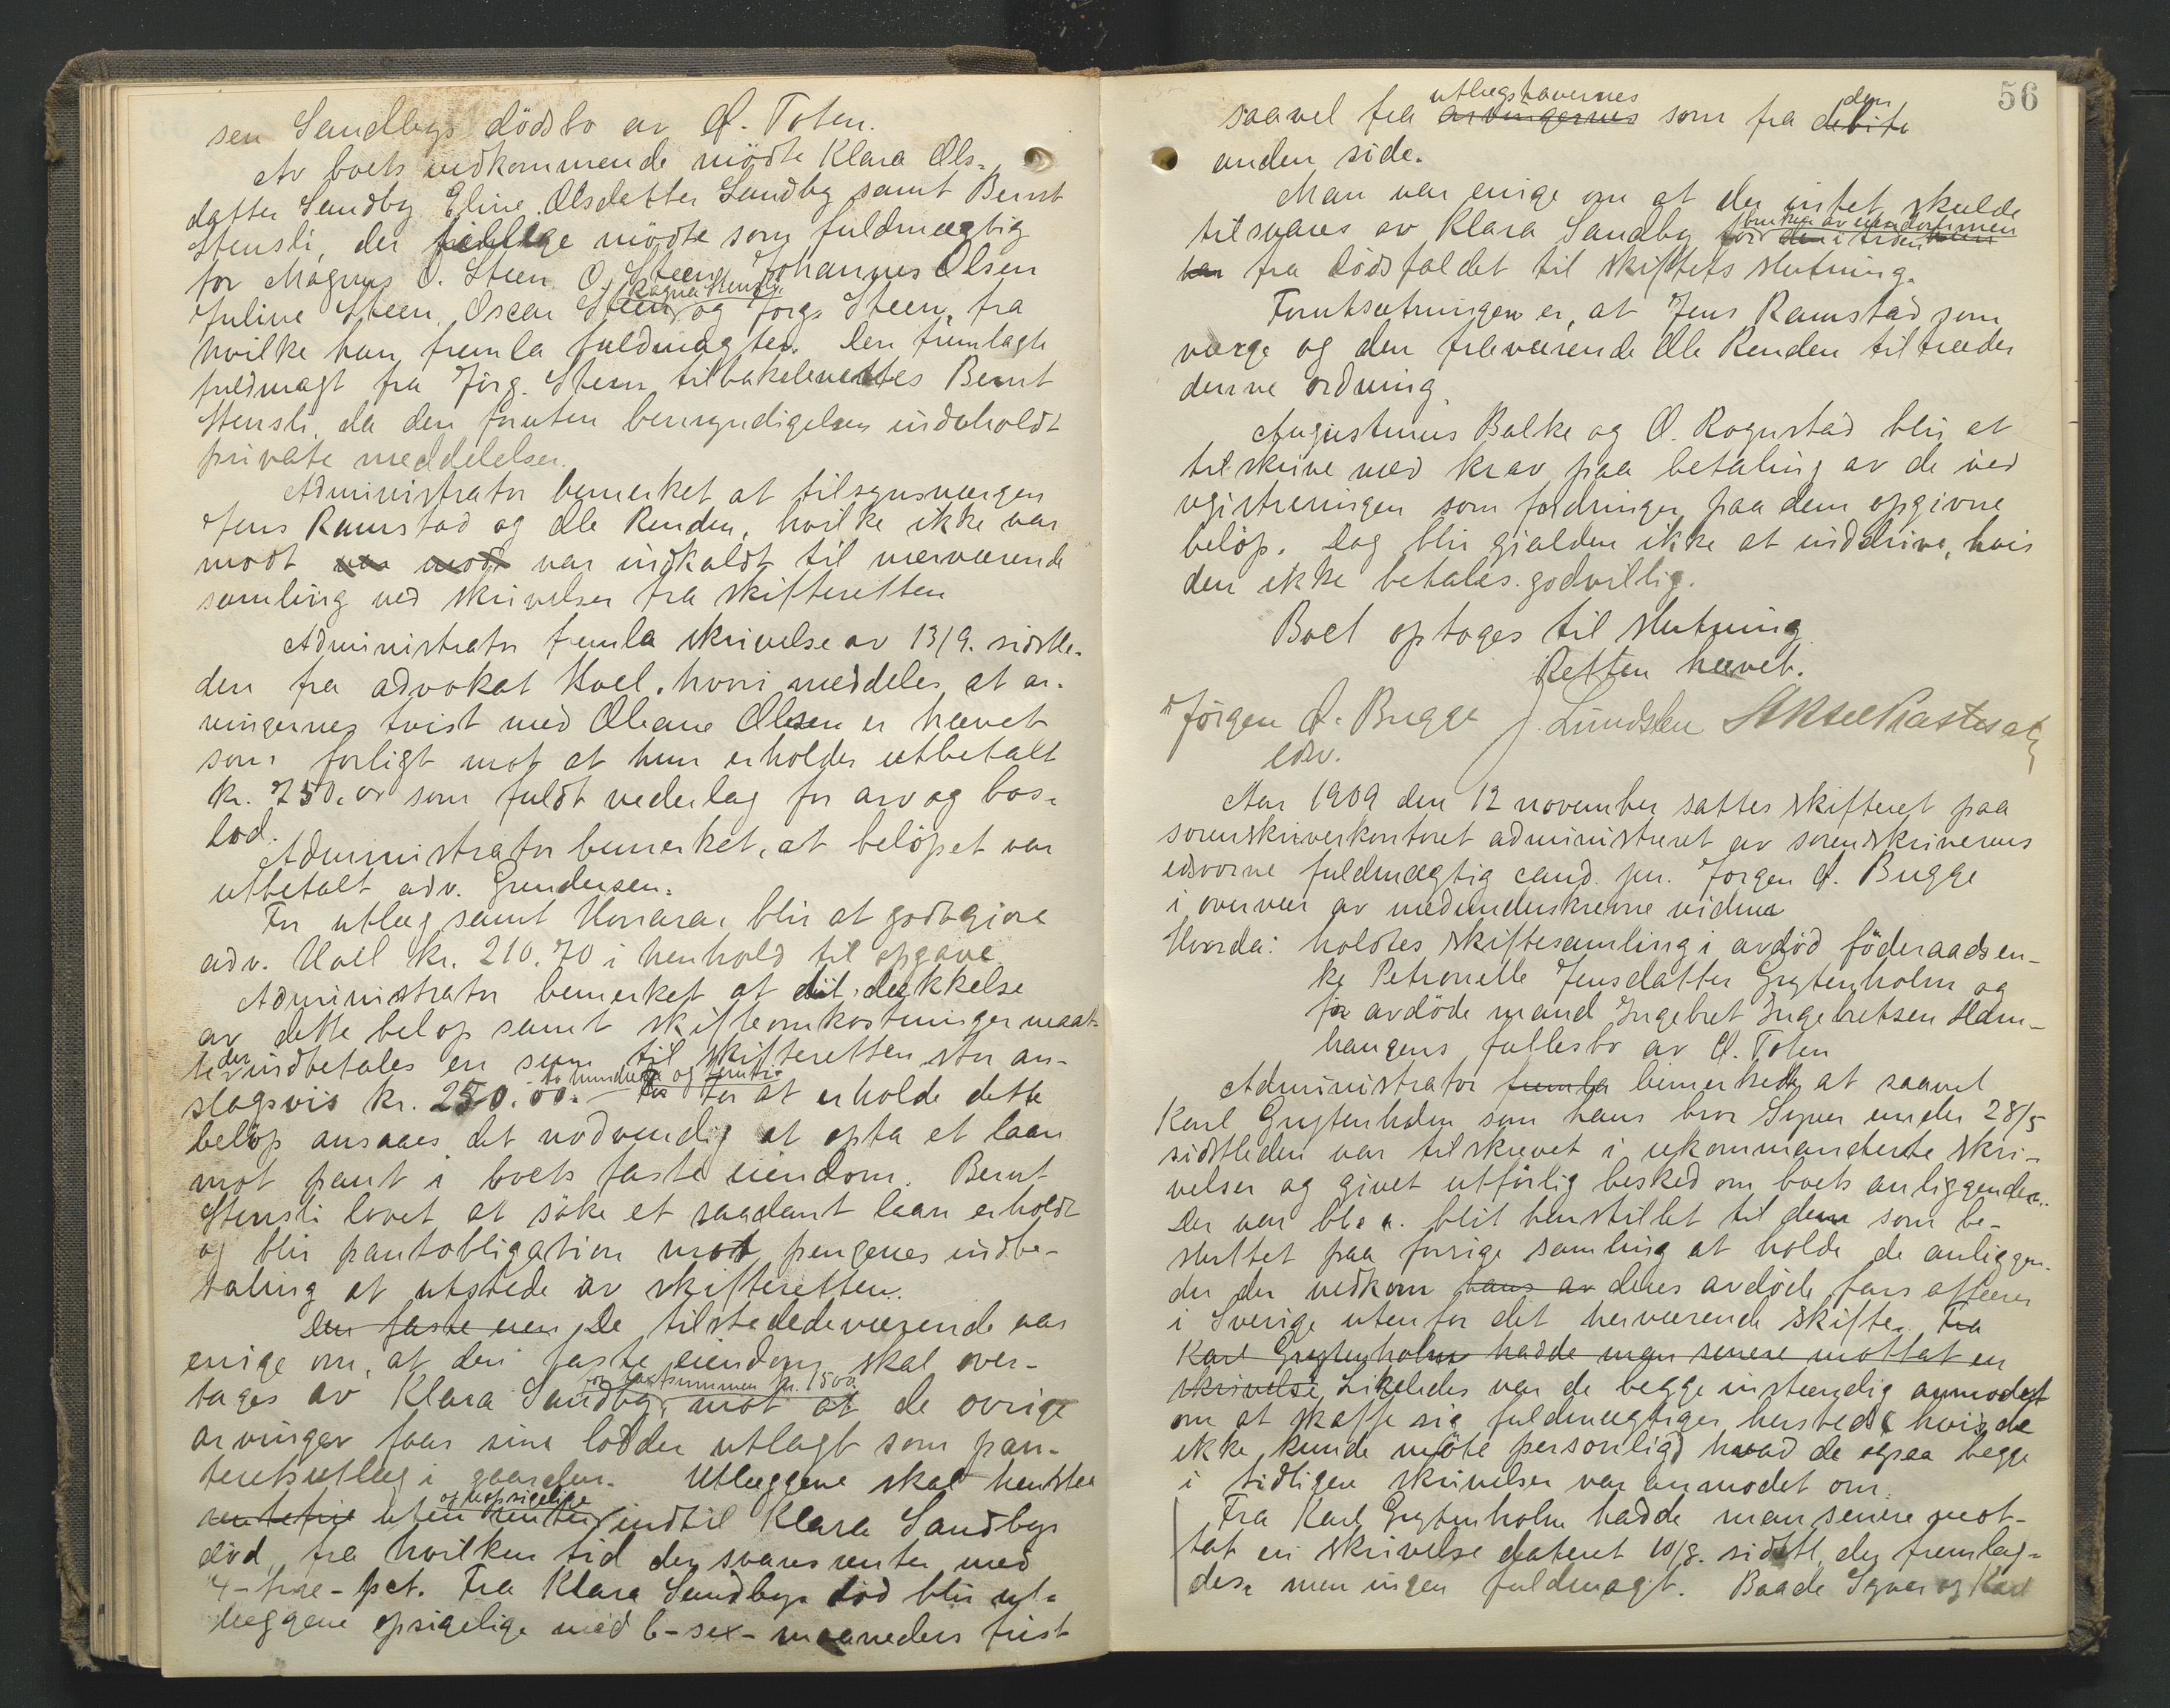 sen Sandbys dödsbo av Ø. Toten.
Av boets vedkommende mödte Klara Ols-
datter Sandby Eline Olsdatter Sandby samt Bernt
Stensli, der tillige mödte som fuldmægtig
for Magnus O. Steen O. Steen, Johannes Olsen
Ragna Stensli
Juline Steen, Oscar Steen og Jörg. Steen, fra
hvilke han fremla fuldmagter. Den fremlagte
fuldmagt fra Jörg. Steen tilbakelevertes Bernt
Stensli, da den foruten bemyndigelsen indeholdt
private meddelelser.
Administrator bemerket at tilsynsvergen
Jens Ramstad og Ole Renden, hvilke ikke var
mödt var mödt var indkaldt til nærværende
samling ved skrivelser fra skifteretten
Administrator fremla skrivelse av 13/9. sidstle-
den fra advokat Hoel, hvori meddeles at ar-
vingernes tvist med Oleane Olsen er hævet
som forligt mot at hun erholder utbetalt
kr. 750.00 som fuldt vederlag for arv og bos-
lod.
Administrator bemerket, at belöpet var
utbetalt adv. Gundersen.
For utlæg samt Honorar blir at godtgjöre
adv. Hoel kr. 210.70 i henhold til opgave.
Administrator bemerket at til dækkelse
av dette belöp samt skifteomkostninger maat-
te der indbetales en sum til skifteretten stor an-
to hundrede og femti
slagsvis kr. 250.00. for at erholde dette
belöp ansaaes det nödvendig at opta et laan
mot pant i boets faste eiendom. Bernt
Stensli lovet at söke et saadant laan erholdt
og blir pantobligation mot pengenes indbe-
taling at utstede av skifteretten.
Den faste eien De tilstedeværende var
enige om, at den faste eiendom skal over-
for taxtsummen kr. 1500
tages av Klara Sandby, mot at de övrige
arvinger faar sine lodder utlagt som pan-
teretsutlæg i gaarden. Utlæggene skal henstaa
og uopsigelige
rentefrie uten renter indtil Klara Sandbys
död, fra hvilken tid der svares renter med
4-fire-pct. Fra Klara Sandbys död blir ut-
læggene opsigelige med 6-sex-maaneders frist
56
utlægshavernes den
saavel fra arvingernes som fra debito
anden side.
Man var enige om at der intet skulde
bruken av eiendommen
tilsvares av Klara Sandby for den i tiden
fra dödsfaldet til skiftets slutning.
Forutsætningen er, at Jens Ramstad som
verge og den fraværende Ole Renden tiltræder
denne ordning.
Augustinus Balke og O. Rognstad blir at
tilskrive med krav paa betaling av de ved
registreringen som fordringer paa dem opgivne
belöp. Dog blir gjælden ikke at inddrive, hvis
den ikke betales godvillig.
Boet optages til slutning.
Retten hævet.
Jörgen A. Bugge J. Lundsten
edsv.
Aar 1909 den 12 november sattes skifteret paa
sorenskriverkontoret administreret av sorenskriverens
edsvorne fuldmægtig cand. jur. Jörgen A. Bugge
i overvær av medunderskrevne vidner
Hvorda: holdtes skiftesamling i avdöd föderaadsen-
ke Petronelle Jensdatter Grytenholm og
för avdöde mand Ingebret Ingebretsen Ham-
haugens fællesbo av Ø. Toten
Administrator fremla bemerkede, at saavel
Karl Grytenholm som hans bror Syver under 28/5
sidstleden var tilskrevet i rekommanderte skri-
velser og givet utförlig besked om boets anliggender.
Der var bl. a. blit henstillet til dem som be-
sluttet paa forrige samling at holde de anliggen-
der der vedkom hans av deres avdöde fars affærer
i Sverige utenfor det herværende skifte. Fra
Karl Grytenholm hadde man senere mottat en
skrivelse Likeledes var de begge instændig anmodet
om at skaffe sig fuldmægtiger hersteds, hvis de
ikke kunde möte personlig, hvad de ogsaa begge
i tidligere skrivelser var anmodet om.
Fra Karl Grytenholm hadde man senere mot-
tat en skrivelse dateret 10/8. sidstl. der fremlag-
des, men ingen fuldmagt. Baade Syver og Karl